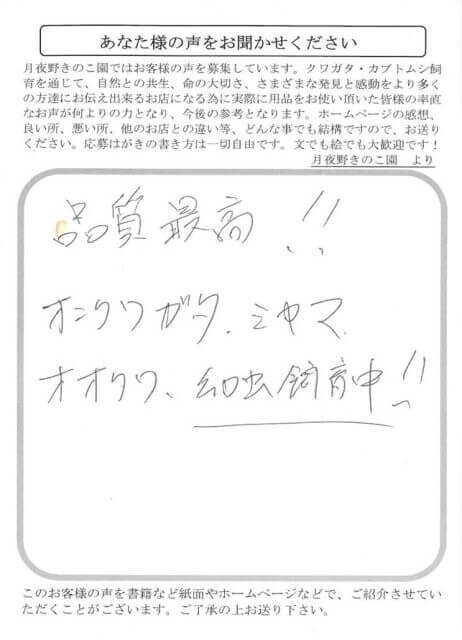 あなた様の声をお聞かせください
月夜野きのこ園ではお客様の声を募集しています。クワガタ・カブトムシ飼
育を通じて、自然との共生、命の大切さ、さまざまな発見と感動をより多く
の方達にお伝え出来るお店になる為に実際に用品をお使い頂いた皆様の率直
なお声が何よりの力となり、今後の参考となります。ホームページの感想、
良い所、悪い所、他のお店との違い等、どんな事でも結構ですので、お送り
ください。応募はがきの書き方は一切自由です。文でも絵でも大歓迎です！
月夜野きのこ園 より
品質最高!!
オニクワガタ、ミヤマ、
オオクワ、幼虫飼育中!!
このお客様の声を書籍など紙面やホームページなどで、ご紹介させてい
ただくことがございます。ご了承の上お送り下さい。